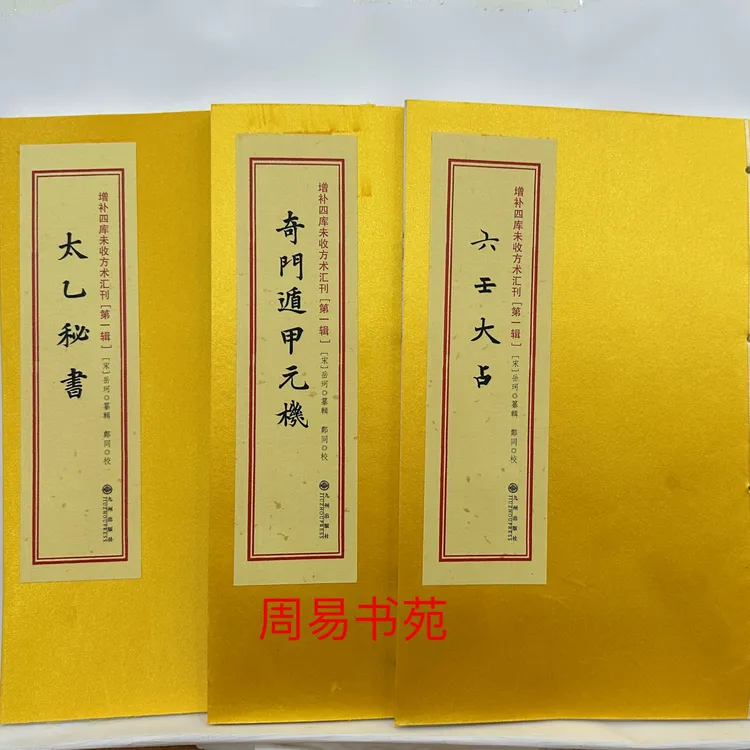 太乙秘書
增补四库未收方术汇刊［第一辑］
［宋］岳珂◎纂輯 鄭同◎校
九州出版社
JIUZHOUPRESS
奇門遁甲元機
增补四库未收方术汇刊［第一辑］
［宋］岳珂◎纂輯 鄭同◎校
九州出版社
JIUZHOUPRESS
六壬大占
增补四库未收方术汇刊［第一辑］
［宋］岳珂◎纂輯 鄭同◎校
九州出版社
JIUZHOUPRESS
周易书苑